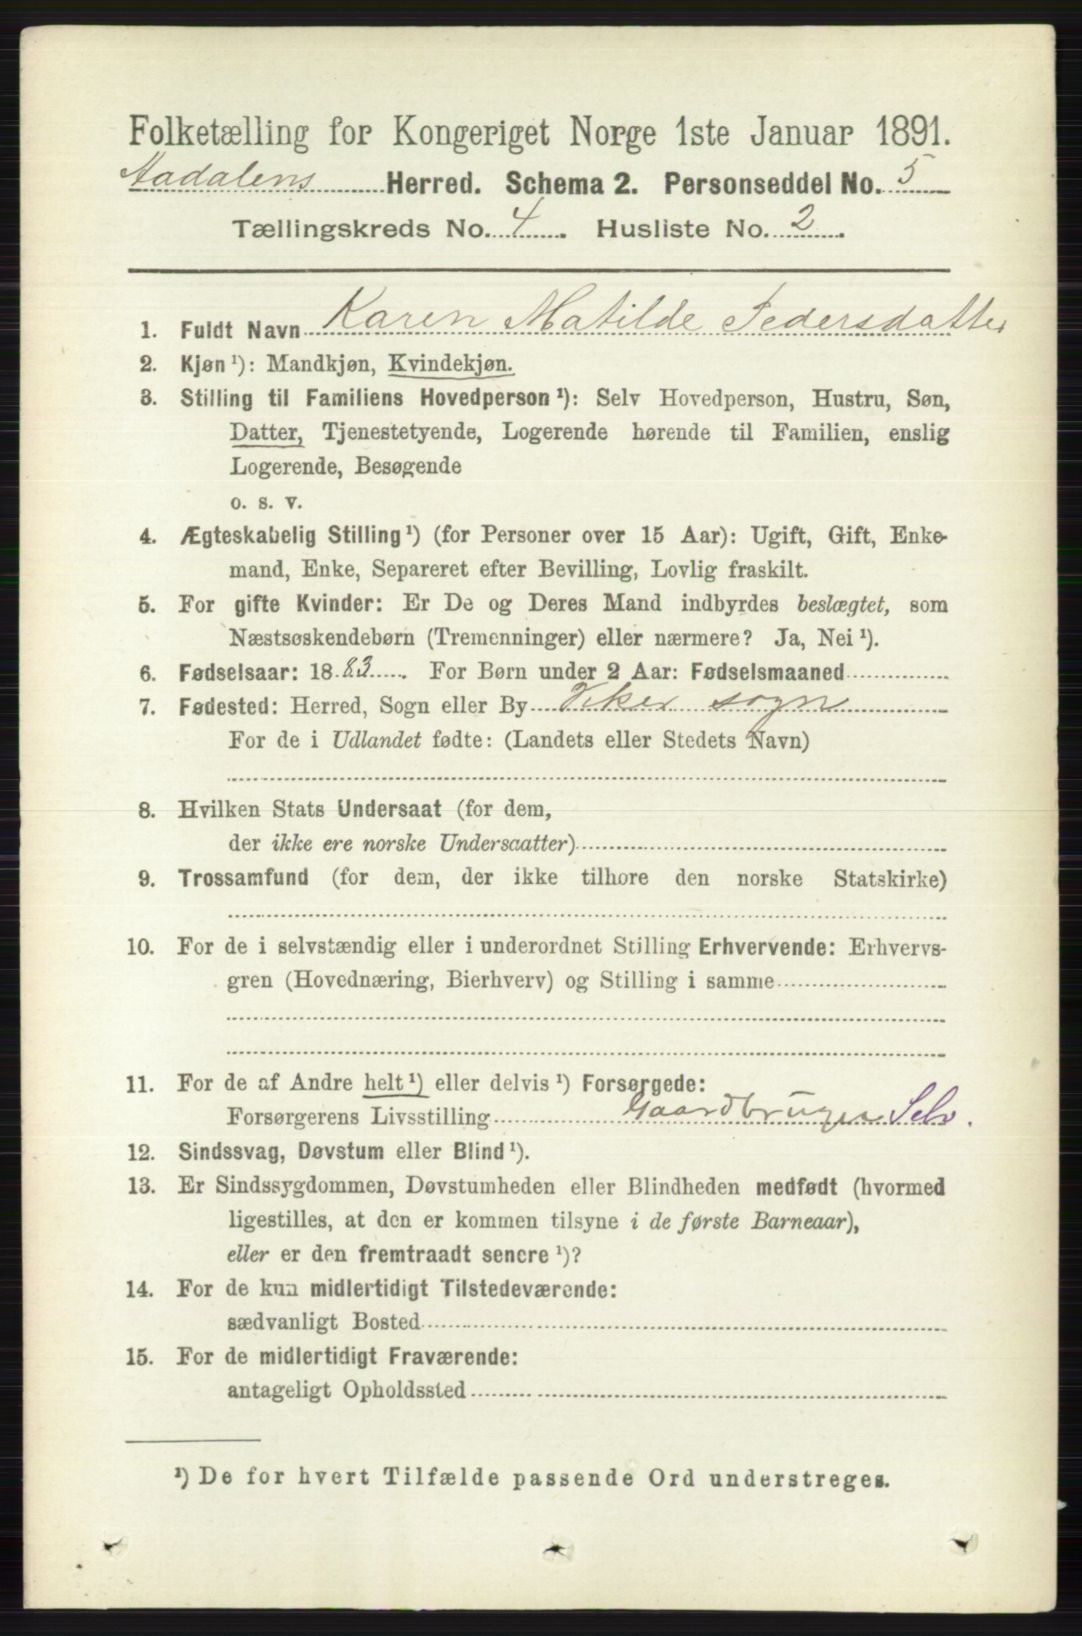 Folketælling for Kongeriget Norge 1ste Januar 1891.
Aadalens Herred. Schema 2. Personseddel No. 5
Tællingskreds No. 4. Husliste No. 2.
1. Fuldt Navn Karen Matilde Pedersdatter
2. Kjøn ¹): Mandkjøn, Kvindekjøn.
3. Stilling til Familiens Hovedperson ¹): Selv Hovedperson, Hustru, Søn,
Datter, Tjenestetyende, Logerende hørende til Familien, enslig
Logerende, Besøgende
o. s. v.
4. Ægteskabelig Stilling ¹) (for Personer over 15 Aar): Ugift, Gift, Enke-
mand, Enke, Separeret efter Bevilling, Lovlig fraskilt.
5. For gifte Kvinder: Er De og Deres Mand indbyrdes beslægtet, som
Næstsøskendebørn (Tremenninger) eller nærmere? Ja, Nei ¹).
6. Fødselsaar: 1883. For Børn under 2 Aar: Fødselsmaaned
7. Fødested: Herred, Sogn eller By Viker sogn
For de i Udlandet fødte: (Landets eller Stedets Navn)
8. Hvilken Stats Undersaat (for dem,
der ikke ere norske Undersaatter)
9. Trossamfund (for dem, der ikke tilhøre den norske Statskirke)
10. For de i selvstændig eller i underordnet Stilling Erhvervende: Erhvervs-
gren (Hovednæring, Bierhverv) og Stilling i samme
11. For de af Andre helt ¹) eller delvis ¹) Forsørgede:
Forsørgerens Livsstilling Gaardbruger Selv.
12. Sindssvag, Døvstum eller Blind ¹).
13. Er Sindssygdommen, Døvstumheden eller Blindheden medfødt (hvormed
ligestilles, at den er kommen tilsyne i de første Barneaar),
eller er den fremtraadt senere ¹)?
14. For de kun midlertidigt Tilstedeværende:
sædvanligt Bosted
15. For de midlertidigt Fraværende:
antageligt Opholdssted
¹) De for hvert Tilfælde passende Ord understreges.